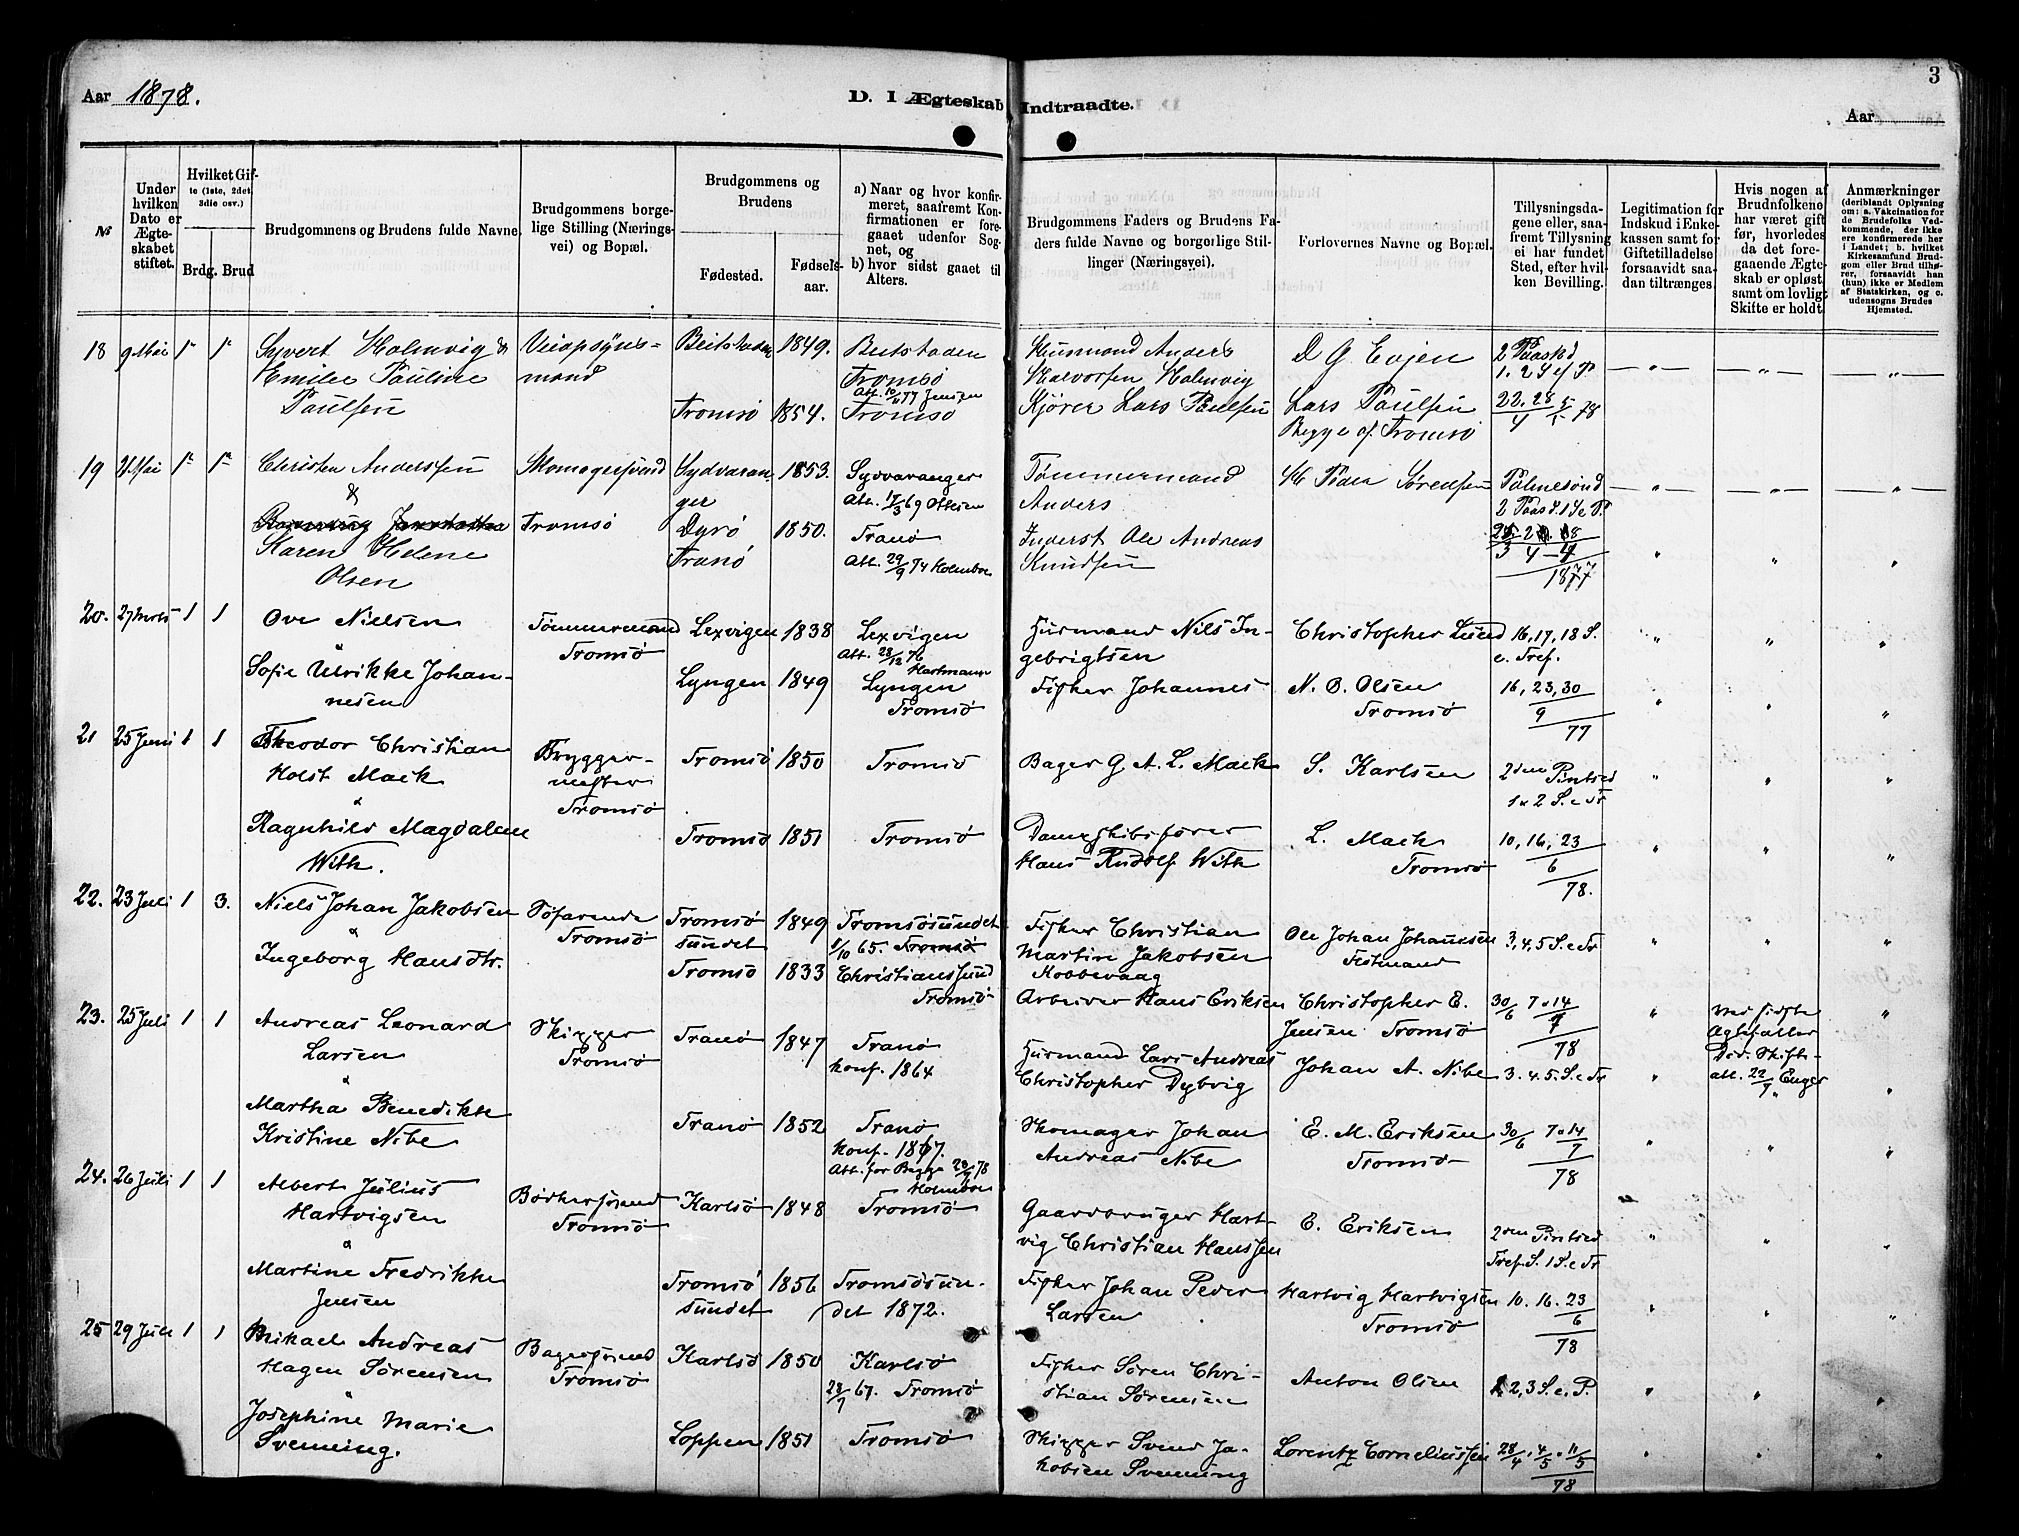 Aar 1878.
D. I Ægteskab Indtraadte.
3
Aar
№
Under hvilken Dato er Ægteskabet stiftet.
Hvilket Gifte (1ste, 2det, 3die osv.)
Brdg. Brud
Brudgommens og Brudens fulde Navne.
Brudgommens borgerlige Stilling (Næringsvei) og Bopæl.
Brudgommens og Brudens
Fødested.
Fødselsaar.
a) Naar og hvor konfirmeret, saafremt Konfirmationen er foregaaet udenfor Sognet, og
b) hvor sidst gaaet til Alters.
Brudgommens Faders og Brudens Faders fulde Navne og borgerlige Stillinger (Næringsvei).
Forlovernes Navne og Bopæl.
Tillysningsdagene eller, saafremt Tillysning ei har fundet Sted, efter hvilken Bevilling.
Legitimation for Indskud i Enkekassen samt for Giftetilladelse forsaavidt saadan tiltrænges.
Hvis nogen af Brudnfolkene har været gift før, hvorledes da det foregaaende Ægteskab er opløst samt om lovligt Skifte er holdt.
Anmærkninger (deriblandt Oplysning om: a. Vakcination for de Brudefolks Vedkommende, der ikke ere konfirmerede her i Landet; b. hvilket Kirkesamfund Brudgom eller Brud tilhører, forsaavidt han (hun) ikke er Medlem af Statskirken, og c. udensogns Brudes Hjemsted.
18 9 Mai 1 1 Syvert Holmvig &
Emilie Pauline
Paulsen
Veiopsynsmand
Beitstaden 1849. Beitstaden
Tromsø
Att. 10/6 77 Jensen
Tromsø 1854. Tromsø
Husmand Anders
Halvorsen Holmvig
Kjører Lars Paulsen
D G Evjen
Lars Paulsen
Begge af Tromsø
2 Paaskd
1. 2 S ef P.
22. 28/4 5/5 78
19 21 Mai 1 1 Christen Anderssen
&
Karen Helene
Olsen
Skomagersvend
Tromsø
Sydvaranger 1853. Sydvaranger
Att. 17/3 69
Dyrø
Tranø 1850. Tranø
Att. 29/9 74 Holmboe
Tømmermand
Anders
Inderst Ole Andreas
Knudsen
Peder Sørensen
Palmesønd
2 Paasd. 1 S e P
1877
20. 27 1 1 Ove Nielsen
&
Sofie Ulrikke Johannesen
Tømmermand
Tromsø
Lexvigen 1838 Lexvigen
Att. 28/12 76
Hartmann
Lyngen 1849 Lyngen
Tromsø
Husmand Nils Ingebrigtsen
Fisker Johannes
Christopher Lund
N. O. Olsen
Tromsø
16, 17, 18 S.
e. Tref.
16, 23, 30
9
77
21 25 Juni 1 1 Theodor Christian
Holst Mack
&
Ragnhild Magdalene
With.
Bryggermester
Tromsø
Tromsø 1850 Tromsø
Tromsø 1851 Tromsø
Bager G A. L. Mack
Dampskibsfører
Hans Rudolf With
S. Karlsen
L. Mack
Tromsø
2den Pintsed
1 & 2 S. e Tr
10, 16, 23
6
78.
22. 23 Juli 1 3. Niels Johan Jakobsen
&
Ingeborg Hansdtr.
Søfarende
Tromsø
Tromsøsundet 1849 Tromsøsundet
1/10 65. Tromsø
Tromsø 1833 Christianssund
Tromsø
Fisker Christian
Martin Jakobsen
Kobbevaag
Arbeider Hans Eriksen
Ole Johan Johannesen
Tistnand
Christopher E.
Jensen Tromsø
3, 4, 5 S. e Tr
30/6 7 & 14
7
78
ved sidste
Att. 22/7 Enger
23. 25 Juli 1 1 Andreas Leonard
Larsen
&
Martha Benedikte
Kristine Nibe
Skipper
Tromsø
Tranø 1847 Tranø
konf. 1864
Tranø 1852 Tranø
konf. 1867.
Att. for Begge 20/7 78
Holmboe
Husmand Lars Andreas
Christopher Dybvig
Skomager Johan
Andreas Nibe
Johan A. Nibe
E. M. Eriksen
Tromsø
3. 4. 5. S. e Tr
30/6 7 & 14
7
78
24. 26 Juli 1 1 Albert Julius
Hartvigsen
&
Martine Fredrikke
Jensen
Bødkersvend
Tromsø
Karlsø 1848 Tromsø
Tromsøsundet 1856 Tromsøsundet 1872.
Gaardbruger Hartvig Christian Hanssen
Fisker Johan Peder
Larsen
E. Eriksen
Hartvig Hartvigsen
Tromsø
2den Pintsed
Tref. S. 1 S. e Tr
10. 16. 23
6
78
25 29 Juli 1 1 Mikael Andreas
Hagen Sørensen
&
Josephine Marie
Svenning.
Bagersvend
Tromsø
Karlsø 1850 Karlsø
Tromsø
Loppen 1851 Tromsø
Fisker Søren Christian Sørensen
Skipper Svend Jakobsen Svenning
Anton Olsen
Lorentz Corneliussen
2, 3 S. e. P.
28/4 . 4/5 . 11/5
78